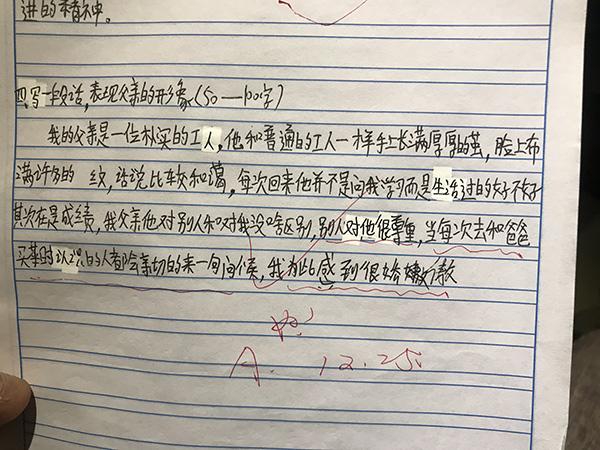 进的精神。
四、写一段话,表现父亲的形象(50—100字)
我的父亲是一位朴实的工人,他和普通的工人一样手上长满厚厚的茧,脸上布
满许多的 纹,话说比较和蔼,每次回来他并不是问我学习而是生活过的好不好
其次在是成绩,我父亲他对别人和对我没啥区别,别人对他很尊重,当每次去和爸爸
买菜时 的人都会亲切的来一句问候,我为此感到很骄傲
A. 12.25